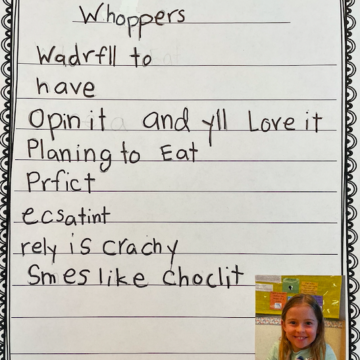 Whoppers
Wadrfll to
have
Opin it and yll Love it
Planing to Eat
Prfict
ecsatint
rely is crachy
Smes like choclit